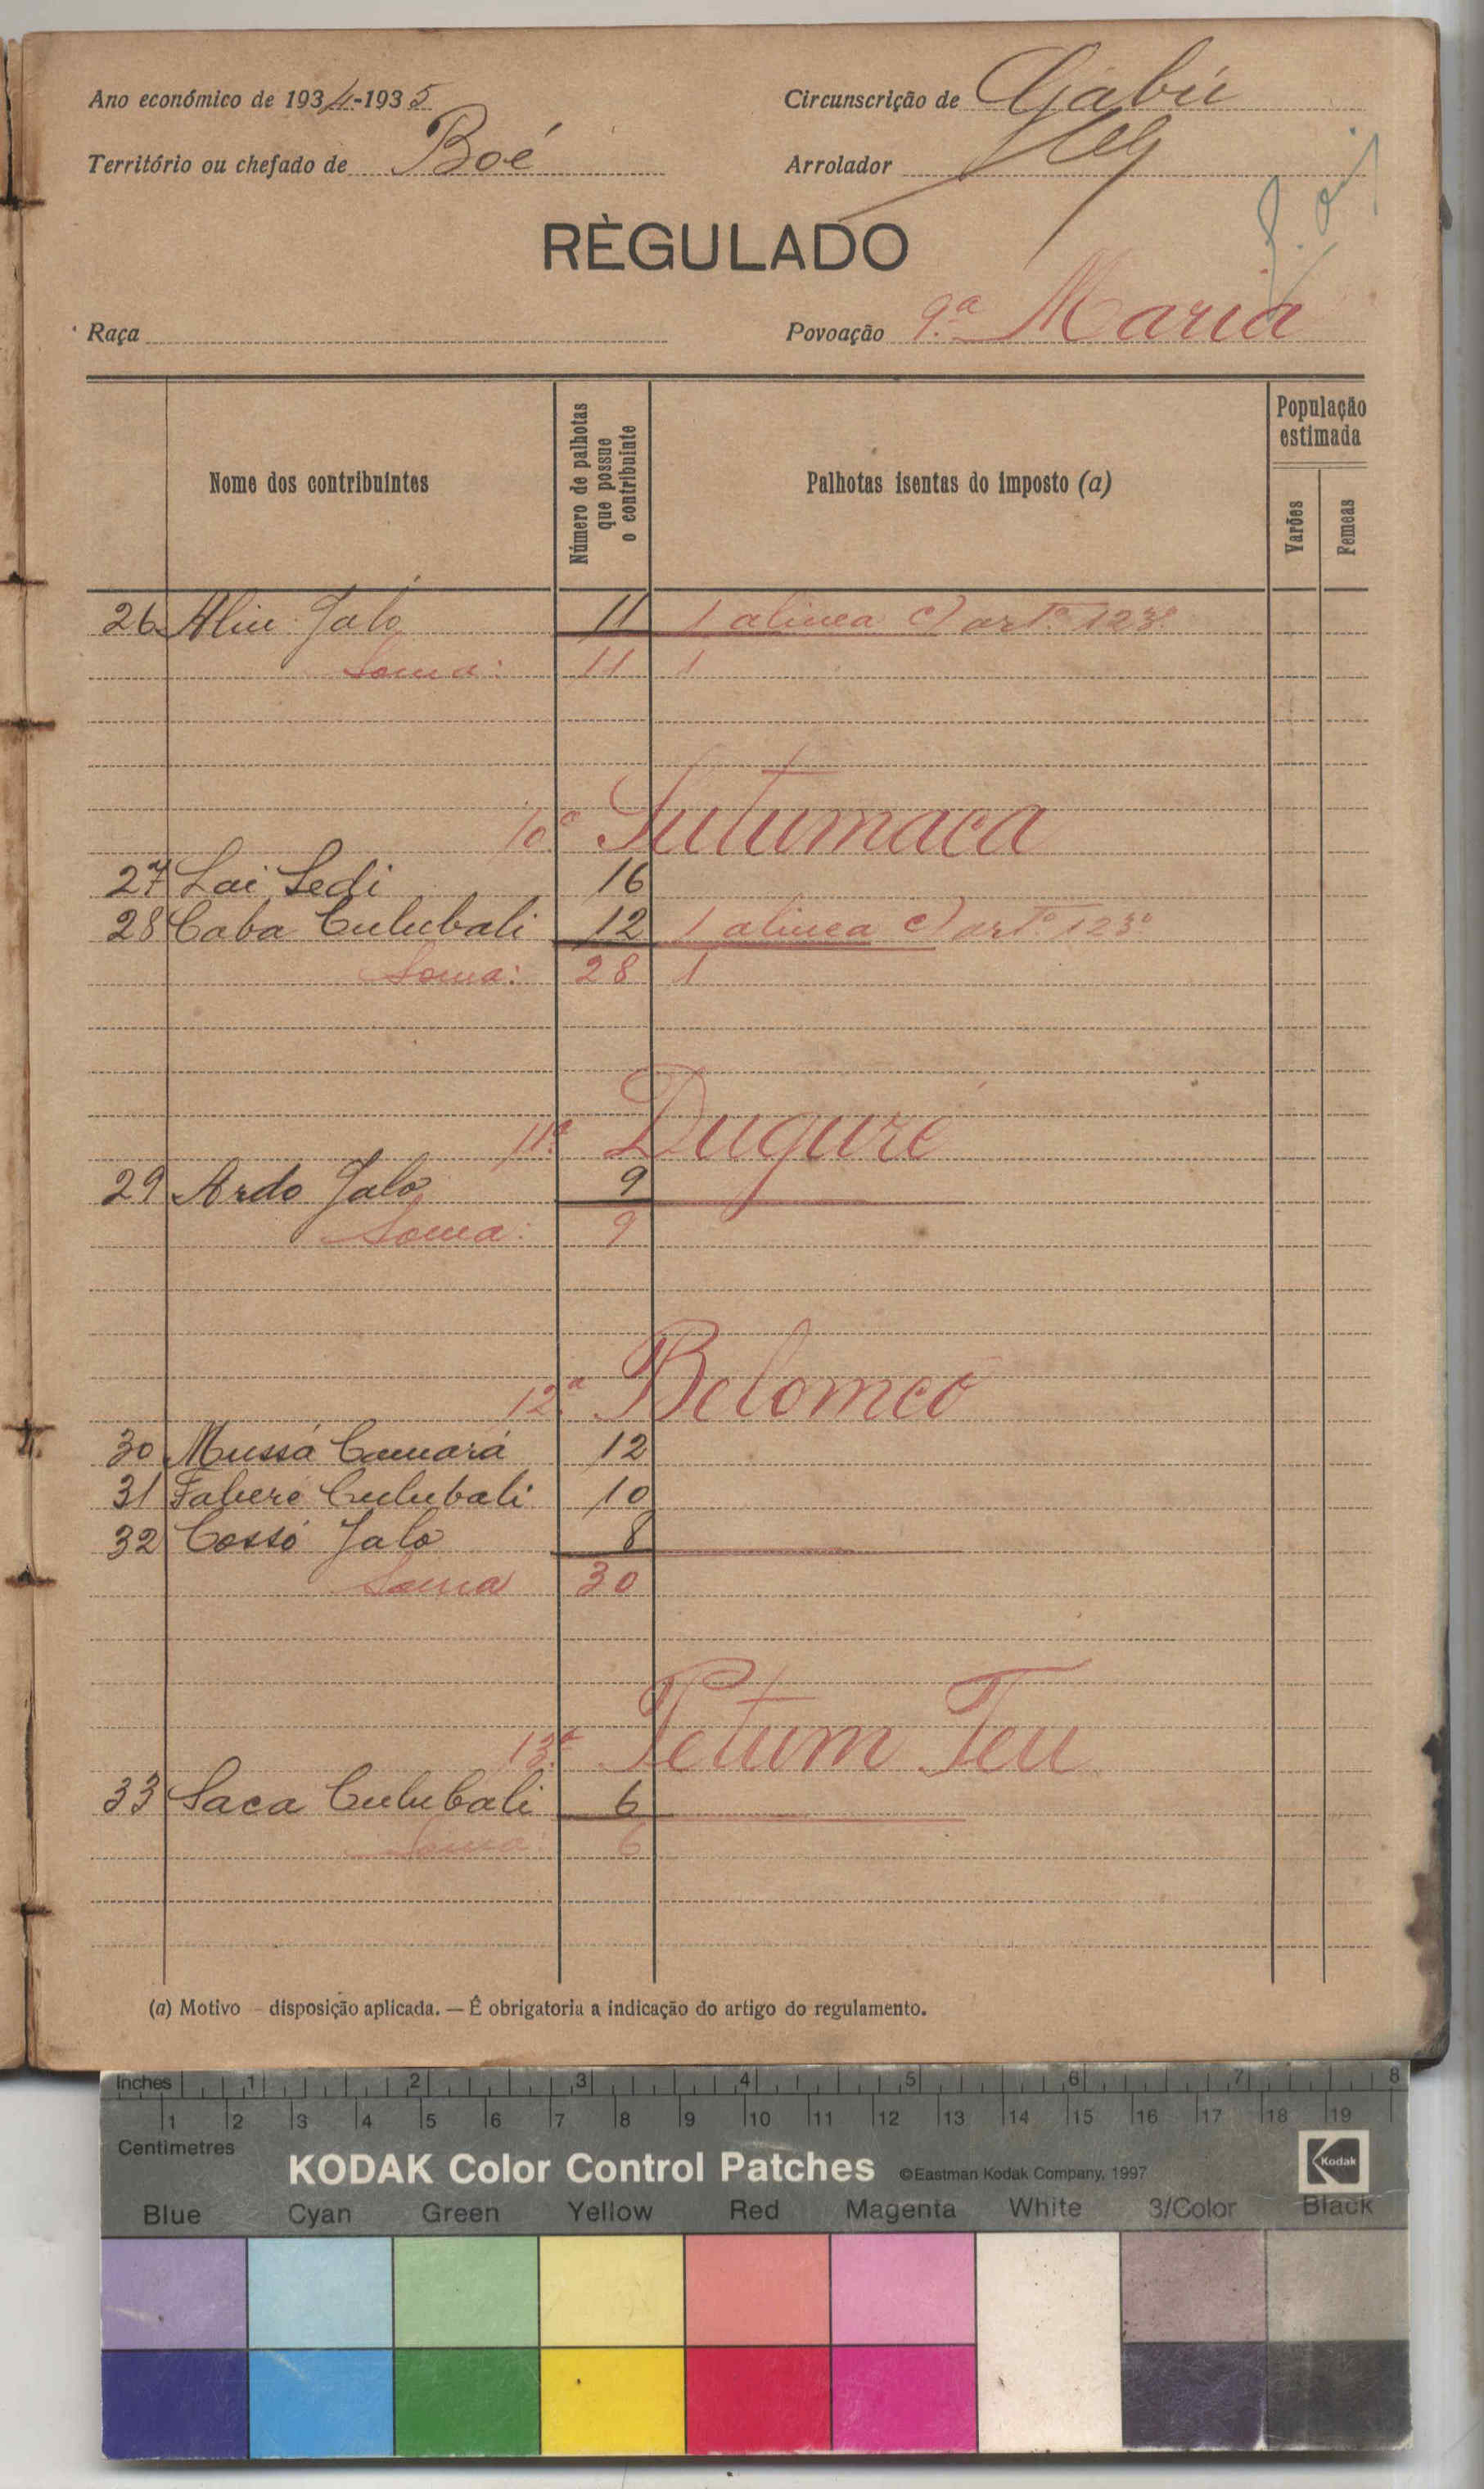 Ano económico de 1934-1935
Circunscrição de Gabú
Território ou chefado de Boé
Arrolador
RÈGULADO
Raça
Povoação 9.ª Maria
Nome dos contribuintes
Número de palhotas que possue o contribuinte
Palhotas isentas do imposto (a)
População estimada
Varões
Femeas
26 Aliu Jaló 11 1 alinea c) artº 123º
Soma: 11 1
10ª Sutumaca
27 Lai Sedi 16
28 Caba Culubali 12 1 alinea c) artº 123º
Soma: 28 1
11ª Duguré
29 Ardo Jalo 9
Soma: 9
12ª Belomeó
30 Mussá Camará 12
31 Faberé Culubali 10
32 Cossó Jalo 8
Soma 30
13ª Petum Teu
33 Saca Culubali 6
Soma: 6
(a) Motivo – disposição aplicada. — É obrigatoria a indicação do artigo do regulamento.
Inches 1 2 3 4 5 6 7 8
1 2 3 4 5 6 7 8 9 10 11 12 13 14 15 16 17 18 19
Centimetres
KODAK Color Control Patches ©Eastman Kodak Company, 1997 Kodak
Blue Cyan Green Yellow Red Magenta White 3/Color Black